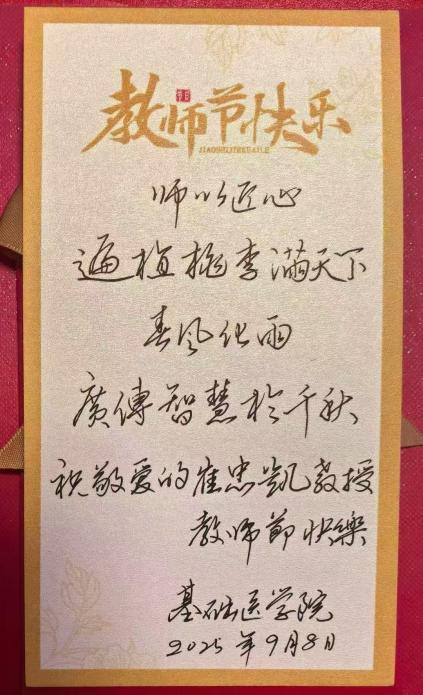 教师节快乐
JIAOSHIJIEKUAILE
师以匠心
遍植桃李滿天下
春风化雨
廣傳智慧於千秋
祝敬爱的崔忠凱教授
教师節快樂
基础医学院
2025年9月8日